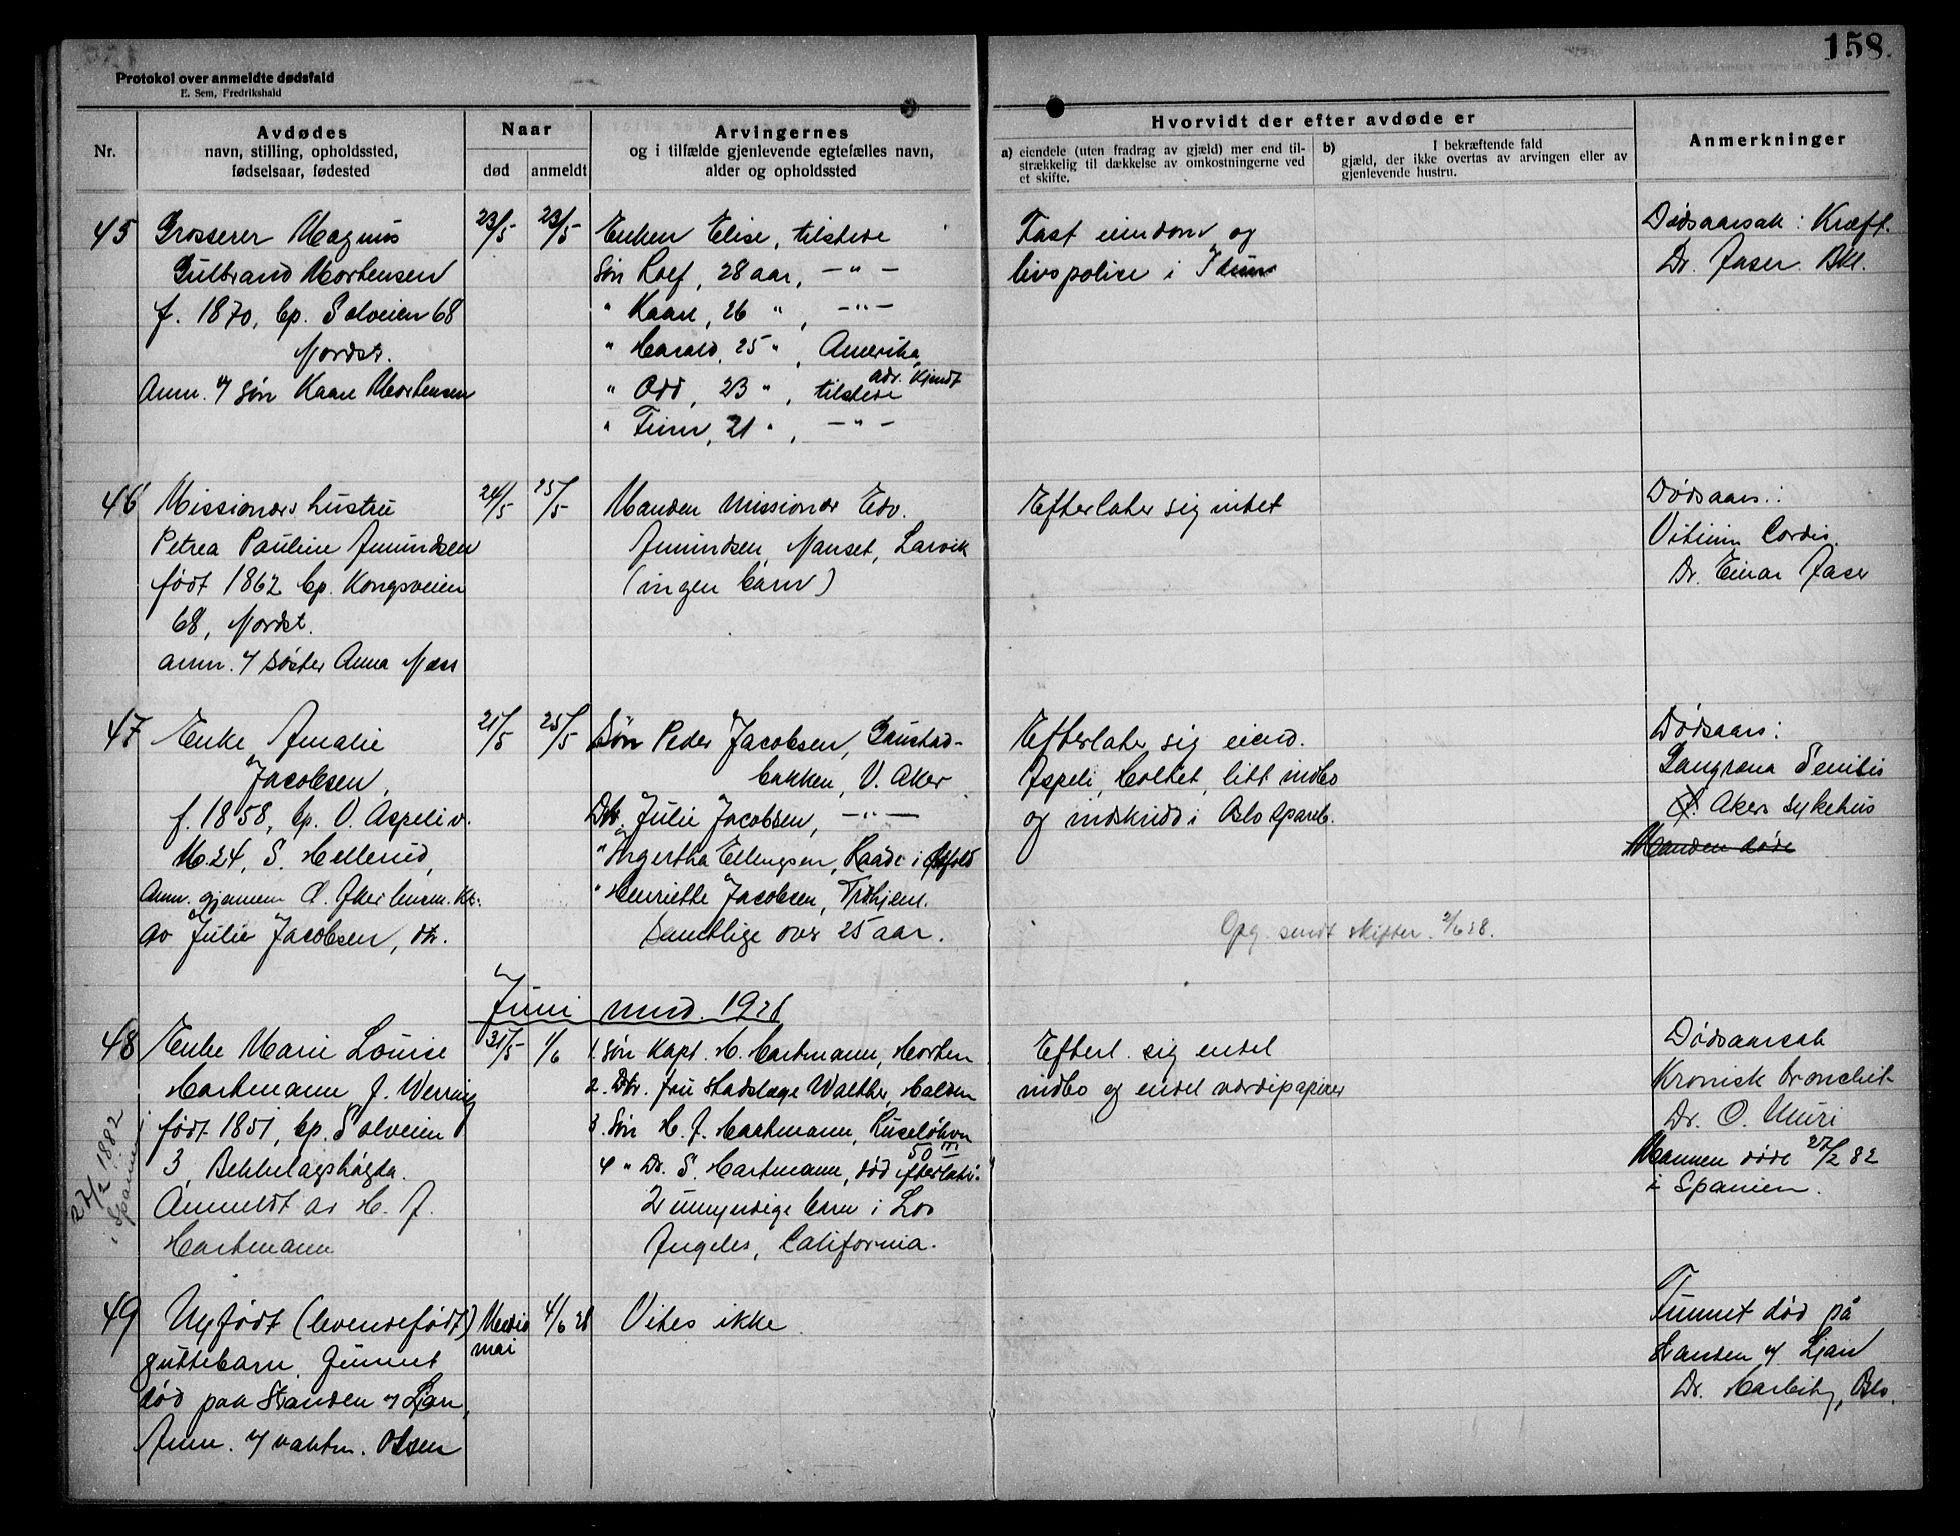 158.
Protokol over anmeldte dødsfald
E. Sem, Fredrikshald
Nr.
Avdødes
navn, stilling, opholdssted,
fødselsaar, fødested
Naar
død
anmeldt
Arvingernes
og i tilfælde gjenlevende egtefælles navn,
alder og opholdssted
Hvorvidt der efter avdøde er
a) eiendele (uten fradrag av gjæld) mer end til-
strækkelig til dækkelse av omkostningerne ved
et skifte.
b) I bekræftende fald
gjæld, der ikke overtas av arvingen eller av
gjenlevende hustru.
Anmerkninger
45
Grosserer Magnus
Gulbrand Mortensen
f. 1870, bp. Solveien 68
Nordst.
Anm. af søn Kaare Mortensen
23/5
23/5
Enken Elise, tilstede
Søn Rolf, 28 aar, — " —
" Kaare, 26 " , — " —
" Harald, 25 " , Amerika,
adr. kjendt
" Odd, 23 " , tilstede
" Finn, 21 " , — " —
Fast eiendom og
livspolice i Idun
Dødsaarsak: Kræft.
Dr. Faser. Bkl.
46
Missionærs hustru
Petrea Pauline Amundsen
født 1862 bp. Kongsveien
68, Nordst.
anm. af søster Anna Næss
24/5
25/5
Manden Missionær Edv.
Amundsen, Nanset, Larvik
(ingen barn)
Efterlater sig intet
Dødsaars.:
Vitium Cordis.
Dr. Einar Faser
47
Enke Amalie
Jacobsen,
f. 1858, bp. V. Aspeliv.
No. 24, S. Hellerud,
Anm. gjennem Ø. Aker lensm. kt.
av Julie Jacobsen, dtr.
21/5
25/5
Søn Peder Jacobsen, Gaustad-
bakken, V. Aker
Dtr. Julie Jacobsen, — " —
" Ingertha Ellingsen, Raade i Østfold
" Henriette Jacobsen, Trdhjem.
Samtlige over 25 aar.
Efterlater sig eiend.
Aspeli, Holtet, litt indbo
og indskudd i Oslo spareb.
Opg. sendt skifter. 2/6 28.
Dødsaars:
Gangræna Senilis
Aker sykehus
Manden døde
Juni mnd. 1928
48
Enke Marie Louise
Hartmann f. Werring
født 1851, bp. Solveien
3, Bekkelagshøgda.
Anmeldt av H. J.
Hartmann
27/2 1882
i Spanien
31/5
1/6
1. Søn Kapt. H. Hartmann, Horten
2. Dtr. fru stadslæge Walther, Halden
3. Søn H. J. Hartmann, Ruseløkvn
50 III
4 " Dr. S. Hartmann, død efterlat:
2 umyndige barn i Los
Angeles, California.
Efterl. sig endel
indbo og endel værdipapirer
Dødsaarsak
Kronisk bronchit
Dr. O. Muri
Mannen døde 27/2 82
i Spanien.
49
Nyfødt (levendefødt)
guttebarn. Funnet
død paa Stranden v/ Ljan,
Anm. af vaktm. Olsen
Medio
mai
4/6 28
Vites ikke
Funnet død på
stranden v/ Ljan
Dr. Harbitz, Oslo.